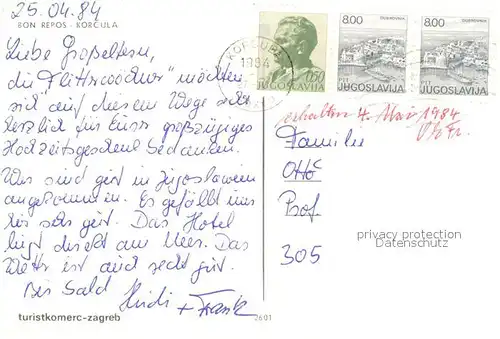 25.04.84
BON REPOS - KORČULA
Liebe Großeltern,
die "Flitterwöchner" möchten
sich auf diesem Wege sehr
herzlich für Euer großzügiges
Hochzeitsgeschenk bedanken.
Wir sind gut in Jugoslawien
angekommen. Es gefällt uns
hier sehr gut. Das Hotel
liegt direkt am Meer. Das
Wetter ist auch recht gut.
Bis bald Heidi
+ Frank
turistkomerc-zagreb
2601
KORČULA
1984
0.50
JUGOSLAVIJA
8.00
PTT
JUGOSLAVIJA
8.00
PTT
JUGOSLAVIJA
erhalten 4. Mai 1984
Familie
Otto
Prof.
305
privacy protection
Datenschutz